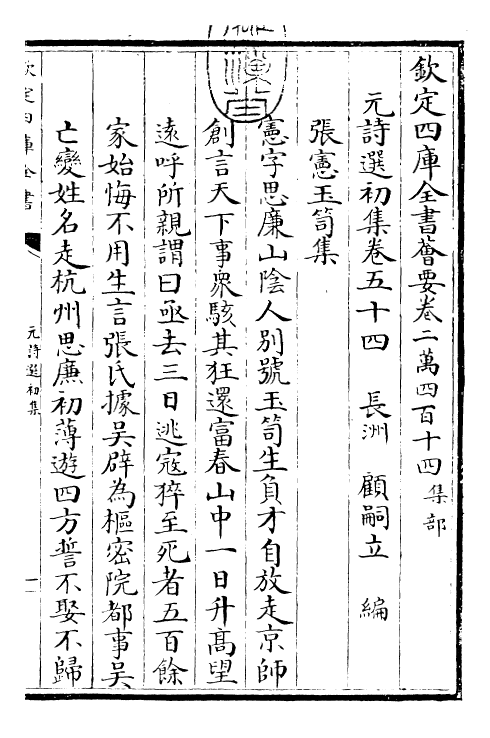 欽定四庫全書薈要卷二萬四百十四 集部
元詩選初集卷五十四 長洲 顧嗣立 編
張憲玉笥集
憲字思廉山陰人别號玉笥生負才自放走京師
創言天下事衆駭其狂還富春山中一日升髙望
逺呼所親謂曰亟去三日逃寇猝至死者五百餘
家始悔不用生言張氏據吳辟為樞密院都事吳
亡變姓名走杭州思廉初薄遊四方誓不娶不歸
欽定四庫全書
元詩選初集
一